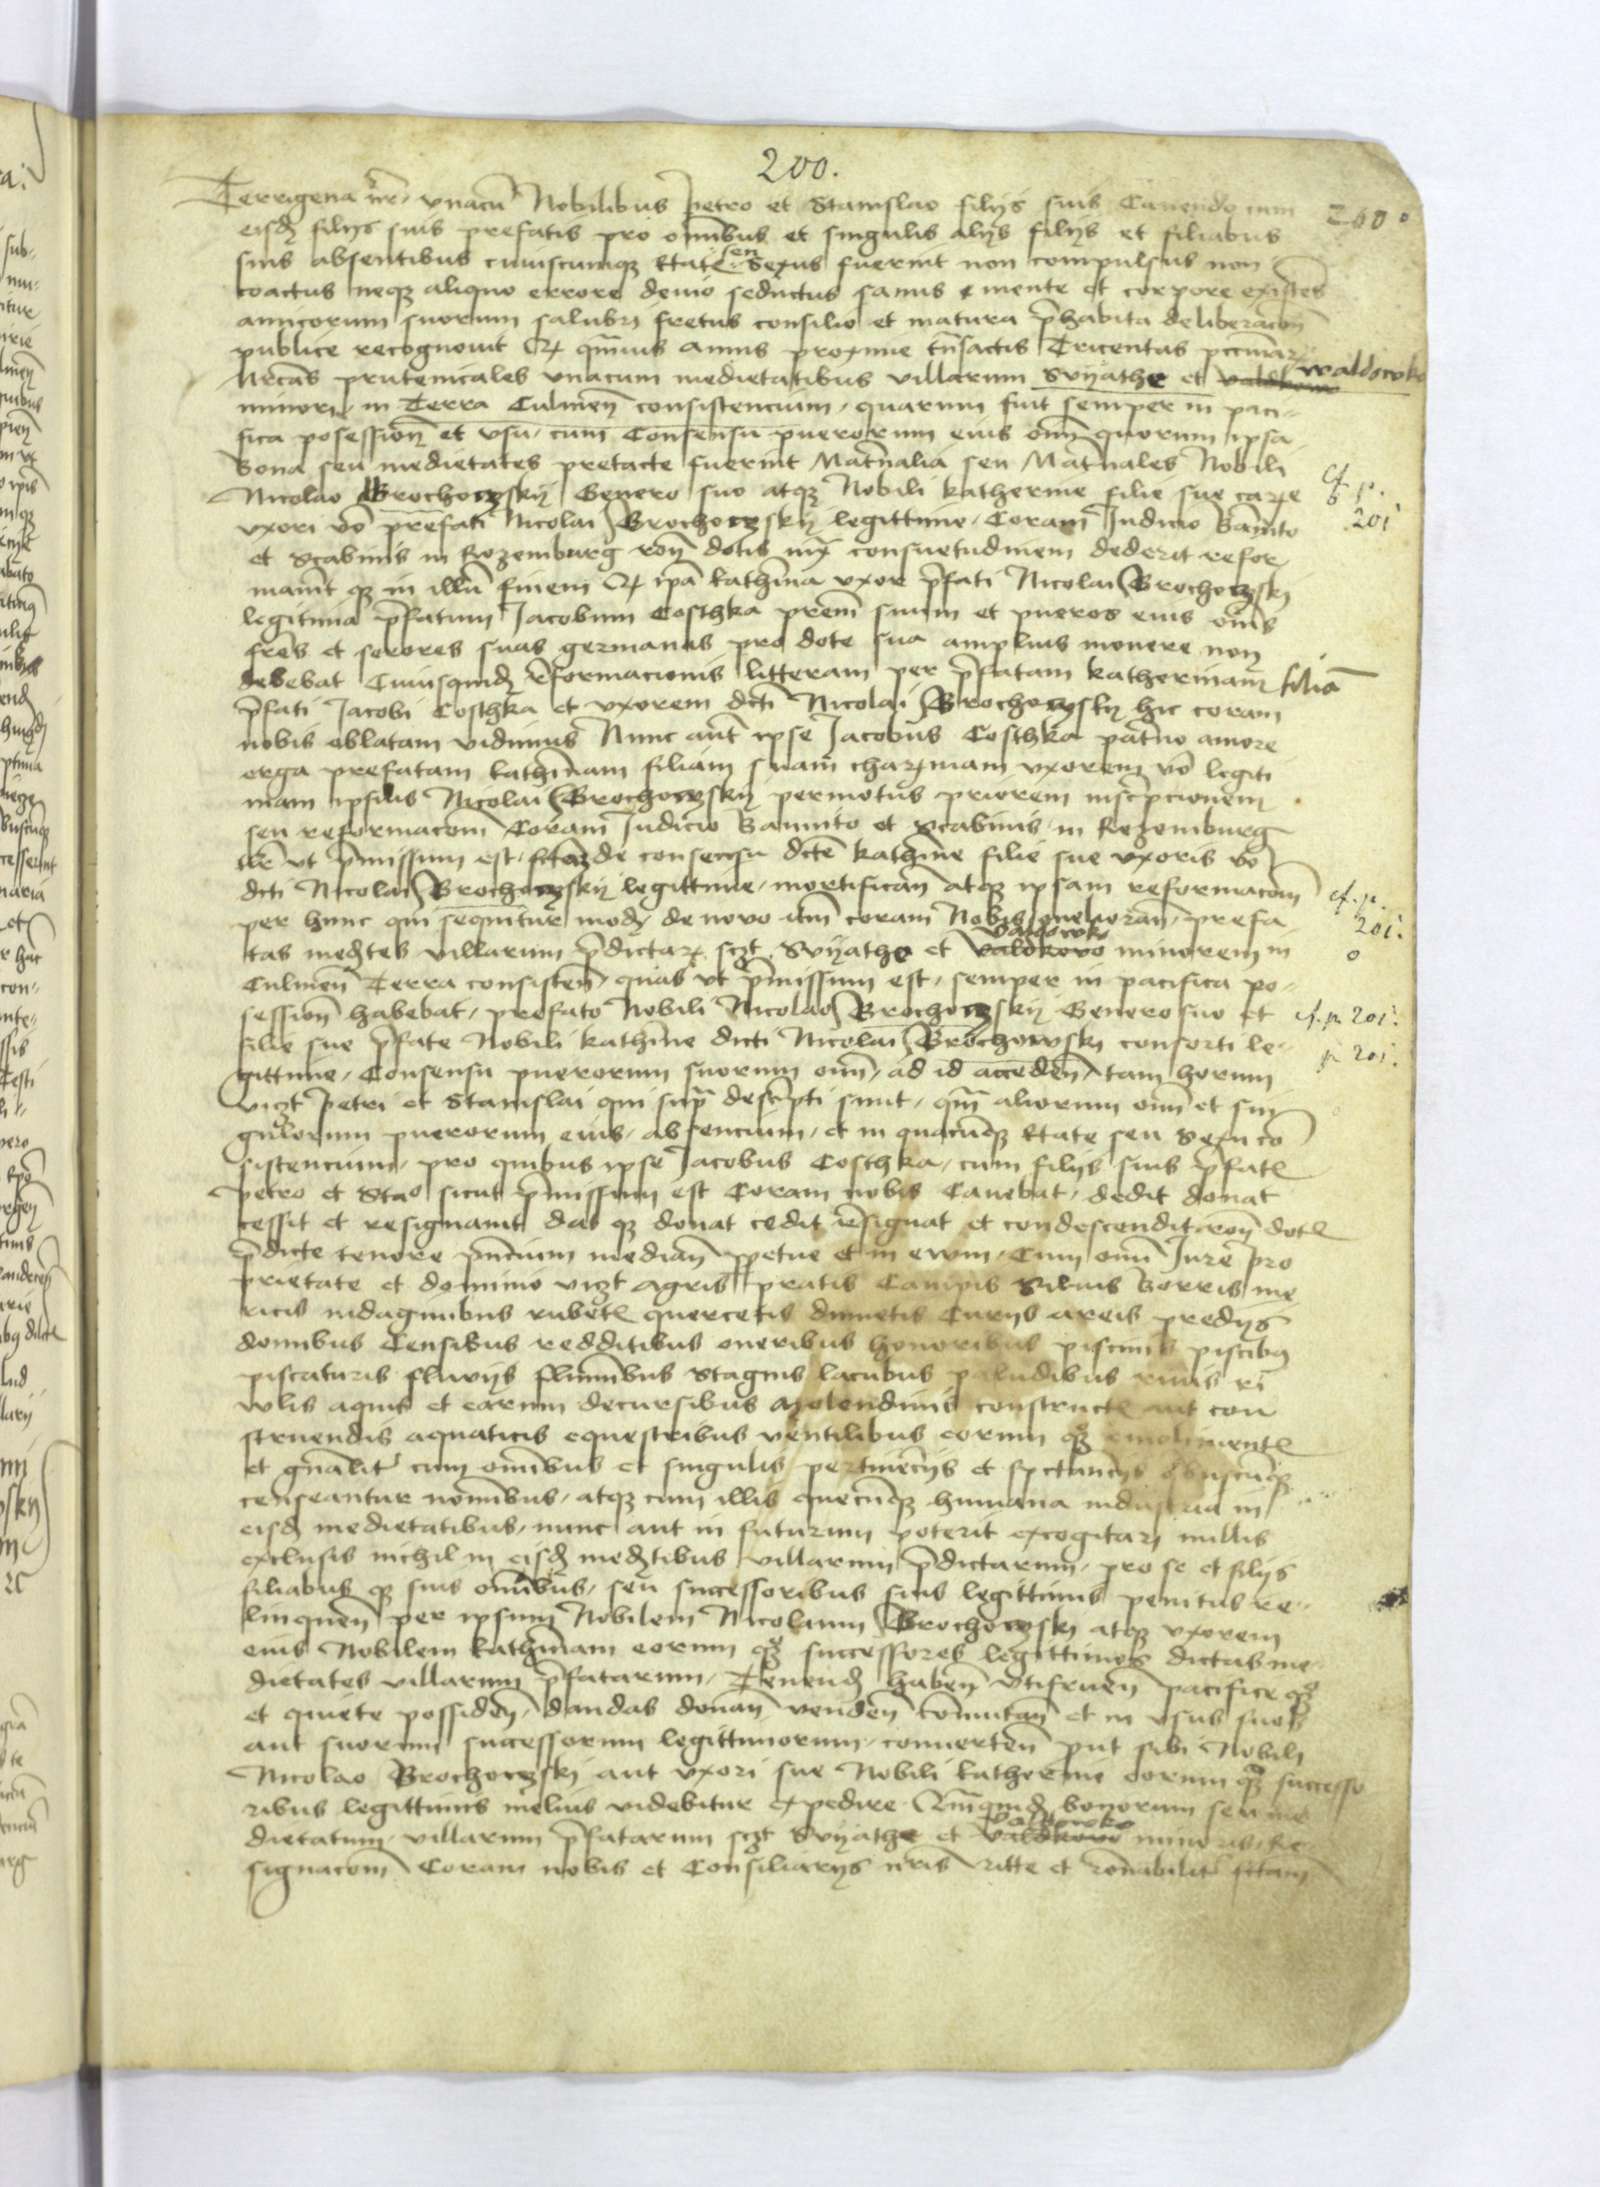 200.
Terrigena nr̄ vnacū Nobilibus Petro et Stanislao filijs suis Cauendo cum 200
eisdꝫ filijs suis prefatis pro omībus et singulis alijs filijs et filiabus
suis absentibus cuiuscumqꝫ etatis seu sexus fuerint non compulsus non
coactus neqꝫ aliquo errore deuio seductus sanus mente et corpore existēs
amicorum suorum salubri fretus consilio et matura p̄habita deliberacoē
publice recognouit Qꝫ qm̄uis annis proxime tn̄sactis Tricentas pccuniar̄
Mrcas prutenicales vnacum medietatibus villarum Svyathe et waldowko
minori in Terra Culmen̄ consistencium quarum fuit semper in paci-
fica posession̄ et vsu cum Consensu puerorum eius om̄ quorum ipsa
bona seu medietates pretacte fuerint Mat̄nalia seu Mat̄nales Nobili
Nicolao Brochoczskij Genero suo atqꝫ Nobili katherine filie sue car̄e cf. p. 201
vxori vō prefati Nicolai Brochoczskij legittime Coram Iudicio banito
et Scabinis in Rozemburg ron̄ dotis iux̄ consuetudinem dederit refor
mauit qꝫ in illū finem Qꝫ ipā kath̄ina vxor p̄fati Nicolai Brochoczskj
legitima p̄fatum Jacobum Costhka pr̄em suum et pueros eius om̄s
fr̄es et sorores suas germanas pro dote sua amplius monere non
debebat Cuiusquidꝫ reformacionis litteram per p̄fatam katherinam filiā
p̄fati Jacobi Costhka et vxorem dc̄ti Nicolai Brochoczskij hic coram
nobis oblatam vidimus Nunc aūt ipse Jacobus Costhka pat̄no amore
erga prefatam kath̄inam filiam suam char̄imam vxorem vō legiti
mam ipsius Nicolai Brochoczskij permotus priorem insc̄pcionem
seu reformacōm Coram Iudicio bannito et scabinis in Rozemburg
vt p̄missum est de consensu dc̄te kath̄ine filie sue vxoris vō
dc̄ti Nicolai Brochoczskij legittime mortifican̄ atqꝫ ipsam reformacōm cf. p. 201.
per hunc qui sequitur modꝫ de nouo coram Nobis melioran̄ prefa
tas medtes villarum p̄dictar̄ sczt Svyathe et Valdowko minorem in
Culmen̄ Terra consisten̄ quas vt p̄missum est semper in pacifica po-
session̄ habebat prefato Nobili Nicolao Brochoczskij Genero suo et cf. p. 201.
filie sue p̄fate Nobili kath̄ine dicti Nicolai Brochowskj consorti le- p 201.
gittime Consensu puerorum suorum om̄ ad id acceden̄ tam horum
viczt Petri et Stanislai qui sup̄ desc̄pti sunt qm̄ aliorum om̄ et sin
gulorum puerorum eius absencium et in quacūqꝫ etate seu sexu cō
sistencium pro quibus ipse Jacobus Costhka cum filijs suis p̄fatꝭ
Petro et Stao sicut p̄missum est Coram nobis Cauebat dedit donat
cessit et resignauit dat qꝫ donat cedit resignat et condescendit ron̄ dotꝭ
p̄dicte tenore p̄ncium median̄ ꝑpetue et in ewm Cum om̄i Iure pro
prietate et dominio viczt agris pratis Campis Siluis borris me
ricis indaginibus rubetꝭ quercetis dumetis Curijs areis predijs
domibus Censibus redditibus oneribus honoribus piscinis piscibꝫ
piscaturis fluvijs fluminibus stagnis lacubus paludibus riuis ri
vulis aquis et earum decursibus molendinis constructꝭ aut con
struendis aquaticis equestribus ventilibus eorum qꝫ emolimentꝭ
et gn̄alit̄ cum om̄ibus et singulis pertinēcijs et spectancijs qbuscūqꝫ
censeantur nominbus atqꝫ cum illis quecūqꝫ humana industria in
eisdꝫ medietatibus nunc aut in futurum poterit excogitari nullis
exclusis nichil in eisdꝫ medtibus villarum p̄dictarum pro se et filijs
filiabus qꝫ suis omībus seu successoribus suis legittimis penitus re-
linquen̄ per ipsum Nobilem Nicolaum Brochoczskj atqꝫ vxorem
eius Nobilem kath̄inam eorum qꝫ successores legittimos dictas me-
dietates villarum p̄fatarum Tenendꝫ haben̄ vtifruen̄ pacifice qꝫ
et quiete possiden̄ dandas donan̄ venden̄ com̄utan̄ et in vsus suos
aut suorum successorum legittimorum conuerten̄ put sibi Nobili
Nicolao Brochoczskj aut vxori sue Nobili katherine eorum qꝫ successo
ribus legittimis melius videbitur expedire Quāquidꝫ bonorum seu me
dietatum villarum p̄fatarum sczt Svyathe et Valdowko minoris Re-
signacōm Coram nobis et Consiliarijs nr̄is ritte et rōnabilit̄ fctam